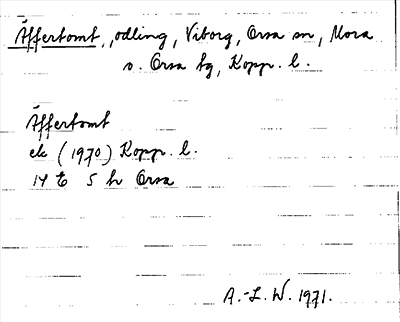 Äffertomt, odling, Viborg, Orsa sn, Mora
o. Orsa tg, Kopp. l.
Äffertomt
ek (1970) Kopp. l.
14 E 5 h Orsa
A.-L. W. 1971.